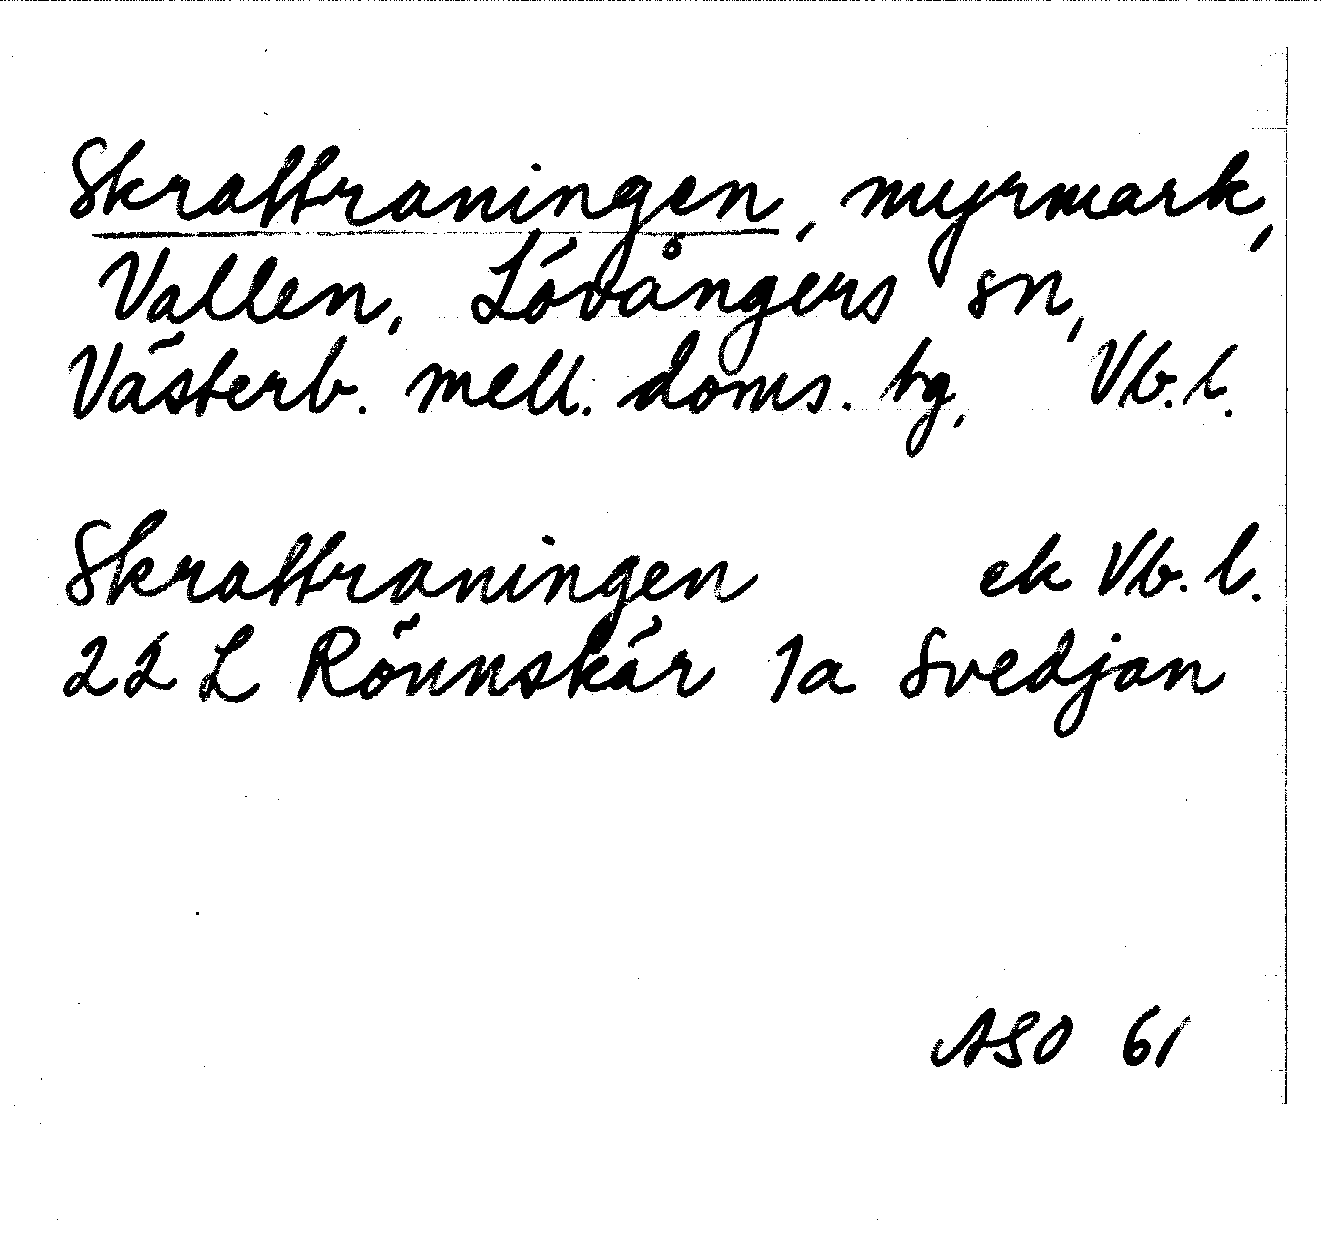 Skrattraningen, myrmark,
Vallen, Lövångers sn,
Västerb. mell. doms. tg, Vb. l.
Skrattraningen ek Vb. l.
22 L Rönnskär 1a Svedjan
ASO 61